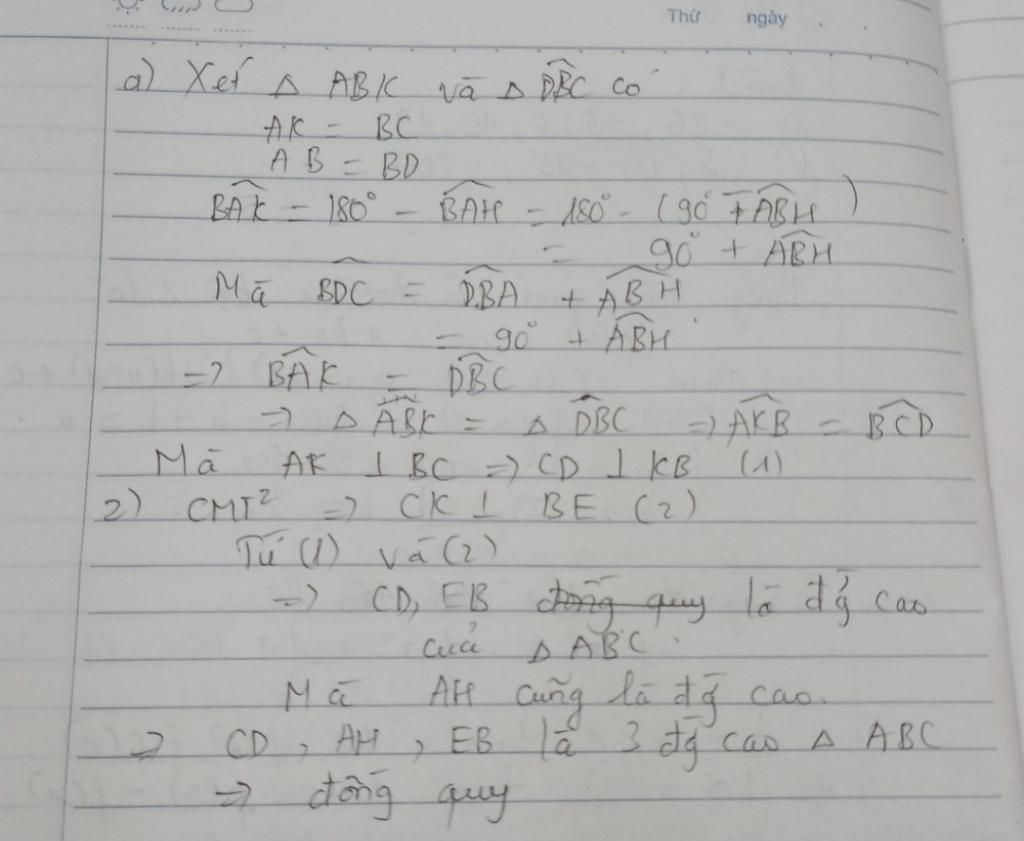 Thứ ngày . .
a) Xét △ ABK và △ DBC có
AK = BC
AB = BD
BAK = 180° - BAH = 180° - (90° - ABH)
= 90° + ABH
Mà BDC = DBA + ABH
= 90° + ABH
=> BAK = DBC
=> △ ABK = △ DBC => AKB = BCD
Mà AK ⊥ BC => CD ⊥ KB (1)
2) CMT² => CK ⊥ BE (2)
Từ (1) và (2)
=> CD, EB đồng quy là đg cao
của △ ABC.
Mà AH cũng là đg cao.
=> CD, AH, EB là 3 đg cao △ ABC
=> đồng quy